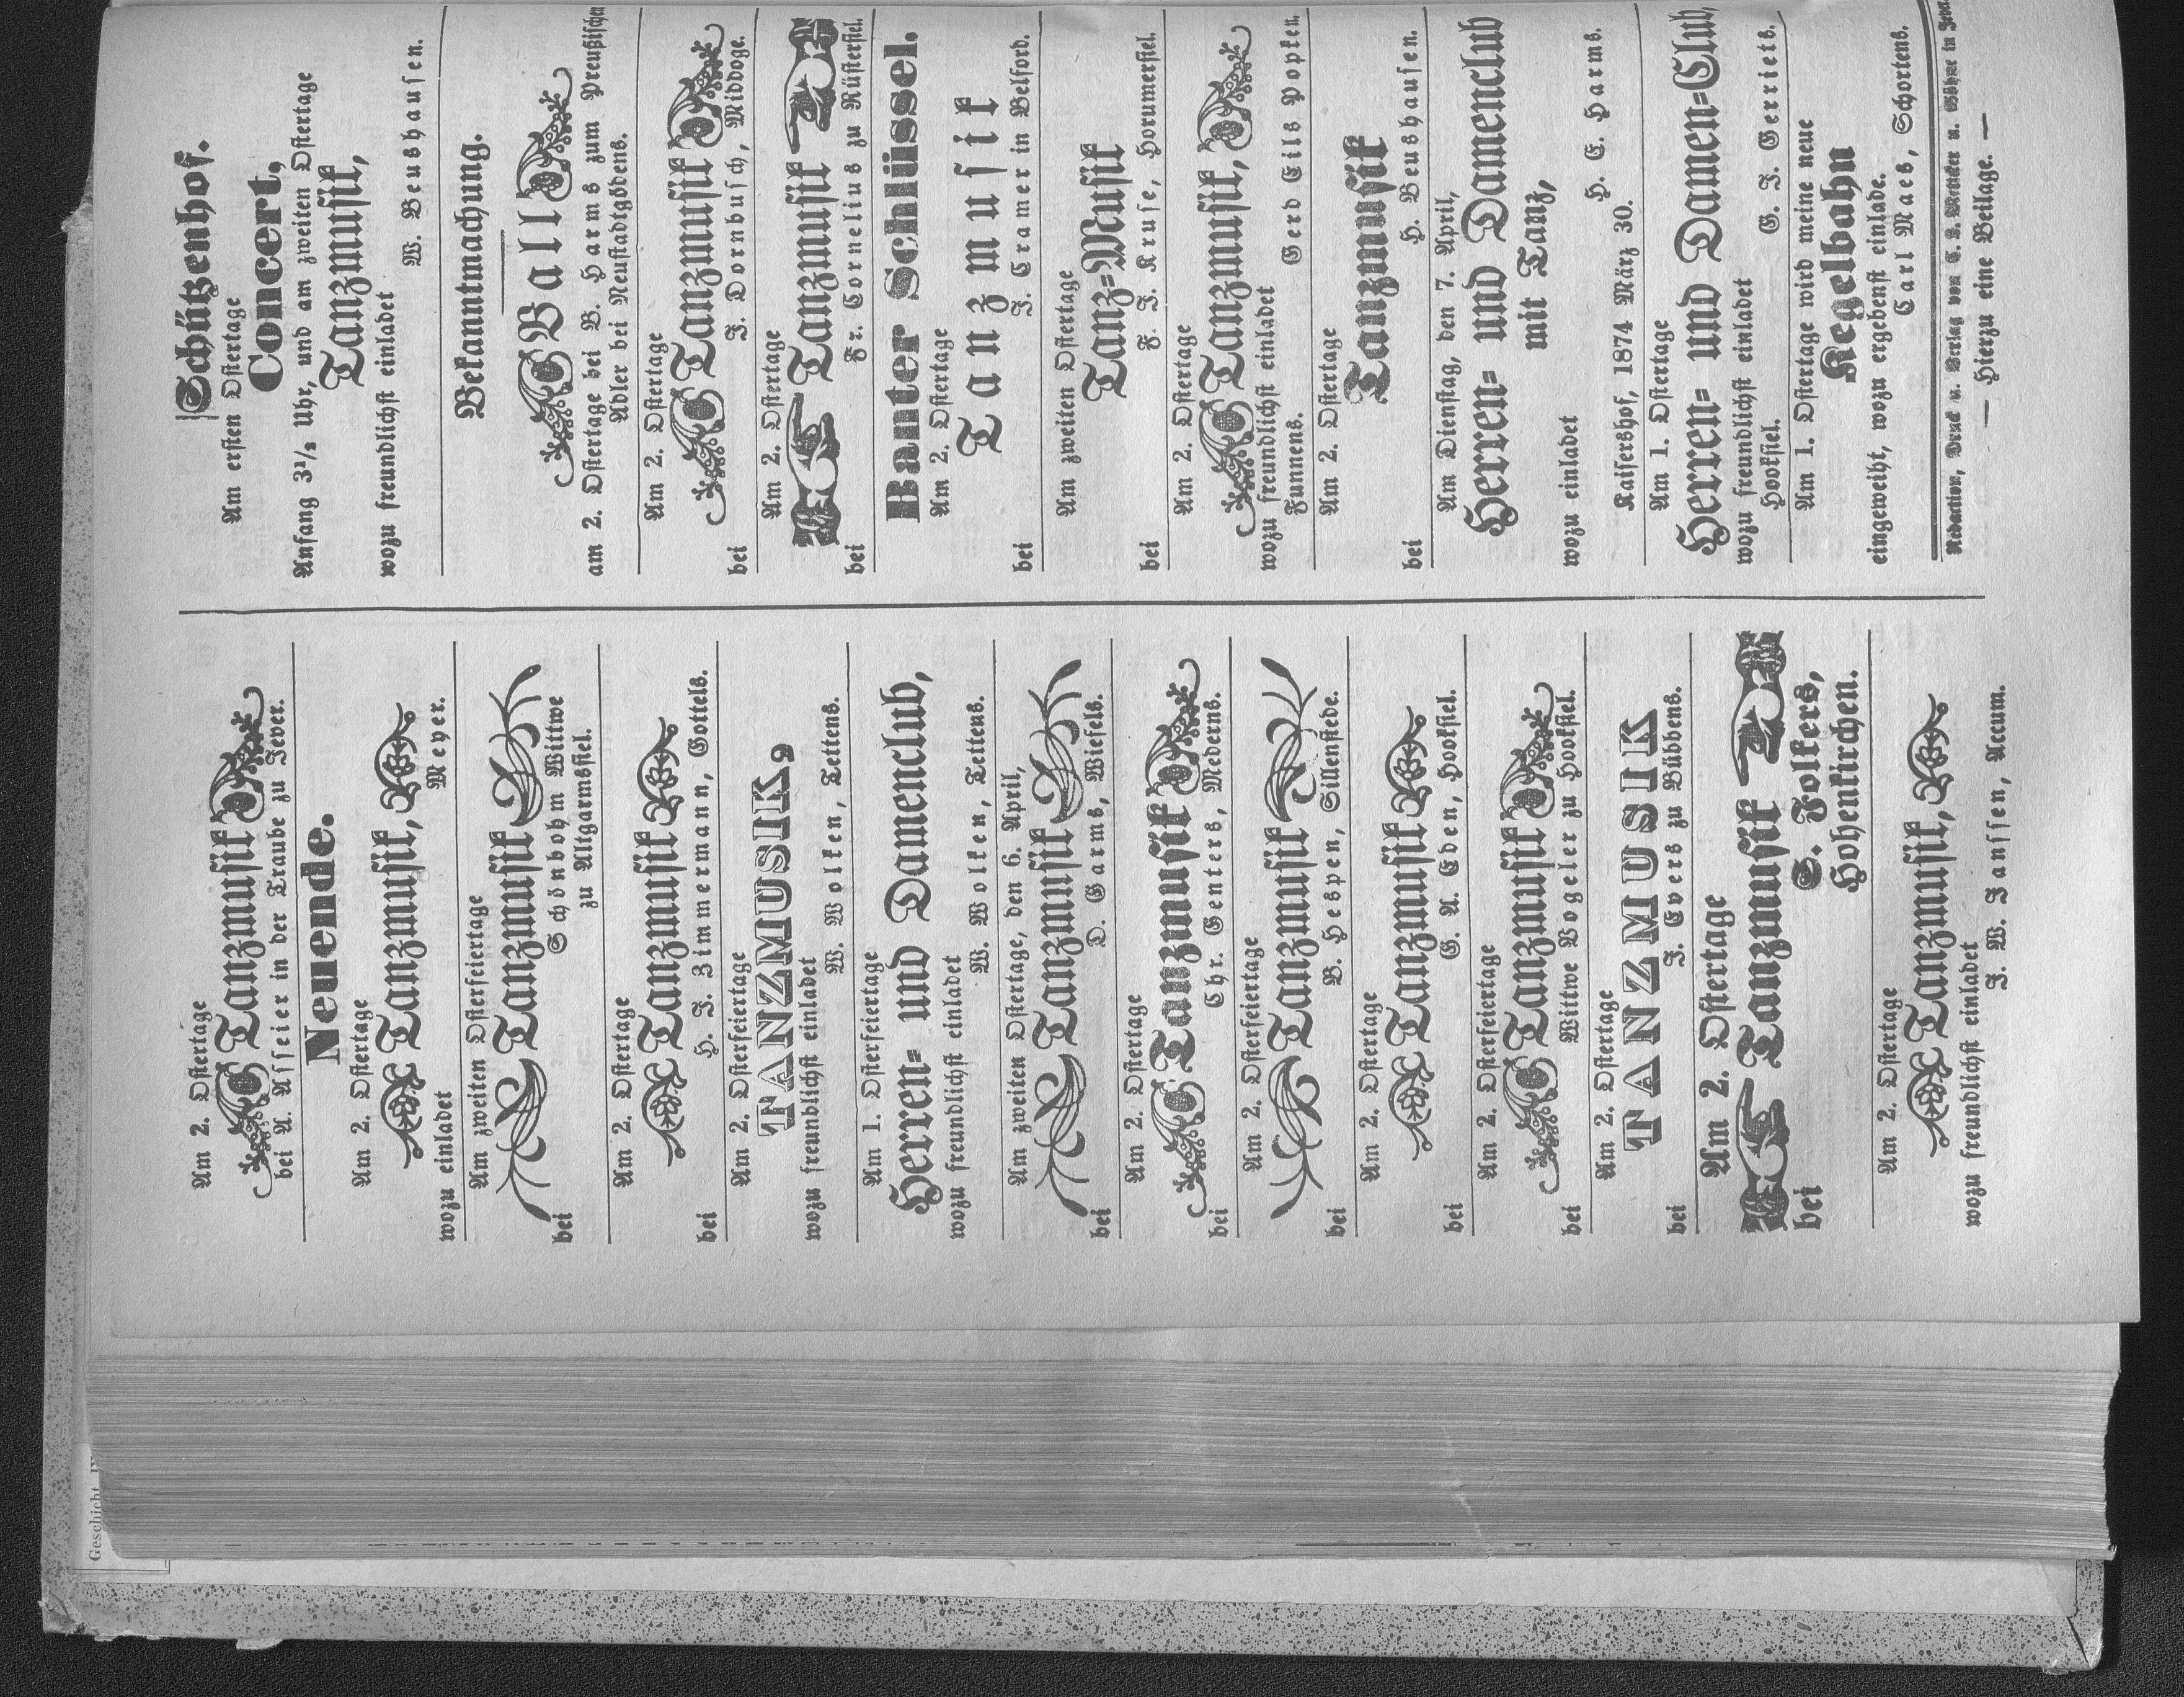 Am 2. Ostertage
Tanzmusik
bei A. Asseier in der Traube zu Jever.
Neuende.
Am 2. Ostertage
Tanzmusik,
wozu einladet Meyer.
Am zweiten Osterfeiertage
Tanzmusik
bei Schönbohm Wittwe
zu Altgarmssiel.
Am 2. Ostertage
Tanzmusik
bei H. J. Zimmermann, Gottels.
Am 2. Osterfeiertage
TANZMUSIK,
wozu freundlichst einladet
W. Wolken, Tettens.
Am 1. Osterfeiertage
Herren- und Damenclub,
wozu freundlichst einladet
W. Wolken, Tettens.
Am zweiten Ostertage, den 6. April,
Tanzmusik
bei D. Garms, Wiefels.
Am 2. Ostertage
Tanzmusik
bei Chr. Genters, Mederns.
Am 2. Osterfeiertage
Tanzmusik
bei B. Hespen, Sillenstede.
Am 2. Ostertage
Tanzmusik
bei G. A. Eden, Hooksiel.
Am 2. Osterfeiertage
Tanzmusik
bei Wittwe Vogeler zu Hooksiel.
Am 2. Ostertage
TANZMUSIK
bei J. Evers zu Bübbens.
Am 2. Ostertage
Tanzmusik
bei S. Folkers,
Hohenkirchen.
Am 2. Ostertage
Tanzmusik,
wozu freundlichst einladet
J. W. Janssen, Accum.
Schützenhof.
Am ersten Ostertage
Concert,
Anfang 3½ Uhr, und am zweiten Ostertage
Tanzmusik,
wozu freundlichst einladet
W. Beushausen.
Bekanntmachung.
Ball
am 2. Ostertage bei B. Harms zum Preußischen
Adler bei Neustadtgödens.
Am 2. Ostertage
Tanzmusik
bei J. Dornbusch, Middoge.
Am 2. Ostertage
Tanzmusik
bei Fr. Cornelius zu Rüstersiel.
Banter Schlüssel.
Am 2. Ostertage
Tanzmusik
bei J. Cramer in Belford.
Am zweiten Ostertage
Tanz-Musik
bei F. J. Kruse, Horumersiel.
Am 2. Ostertage
Tanzmusik,
wozu freundlichst einladet
Funnens. Gerd Eils Popken.
Am 2. Ostertage
Tanzmusik
bei H. Beushausen.
Am Dienstag, den 7. April,
Herren- und Damenclub
mit Tanz,
wozu einladet
H. E. Harms.
Kaisershof, 1874 März 30.
Am 1. Ostertage
Herren- und Damen-Club,
wozu freundlichst einladet
Hooksiel. G. J. Gerriets.
Am 1. Ostertage wird meine neue
Kegelbahn
eingeweiht, wozu ergebenst einlade.
Carl Maes, Schortens.
Redaction, Druck u. Verlag von C. L. Mettcker u. Söhne in Jever.
— Hierzu eine Beilage. —